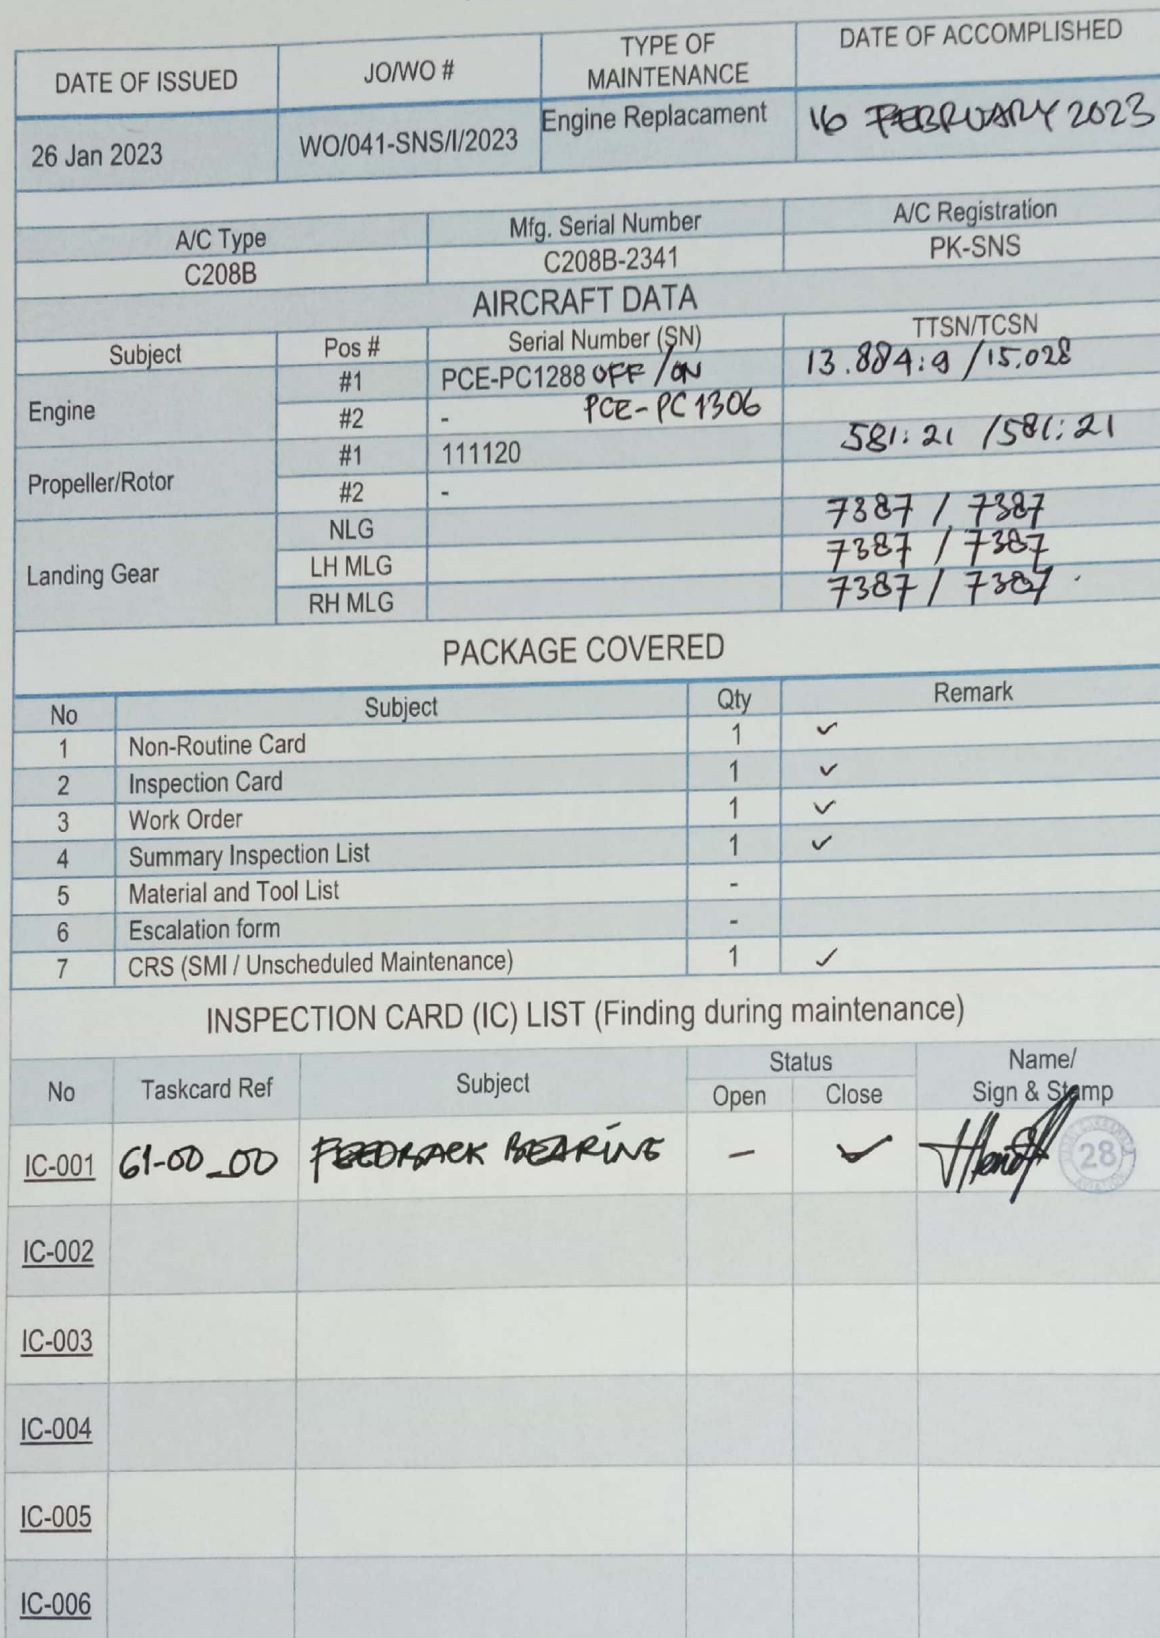 DATE OF ISSUED JO/WO # TYPE OF MAINTENANCE DATE OF ACCOMPLISHED
26 Jan 2023 WO/041-SNS/I/2023 Engine Replacament 16 FEBRUARY 2023
A/C Type Mfg. Serial Number A/C Registration
C208B C208B-2341 PK-SNS
AIRCRAFT DATA
Subject Pos # Serial Number (SN) TTSN/TCSN
Engine #1 PCE-PC1288 OFF / ON 13.884:9 / 15.028
#2 - PCE-PC1306
Propeller/Rotor #1 111120 581:21 / 581:21
#2 -
Landing Gear NLG 7387 / 7387
LH MLG 7387 / 7387
RH MLG 7387 / 7387
PACKAGE COVERED
No Subject Qty Remark
1 Non-Routine Card 1 ✓
2 Inspection Card 1 ✓
3 Work Order 1 ✓
4 Summary Inspection List 1 ✓
5 Material and Tool List -
6 Escalation form -
7 CRS (SMI / Unscheduled Maintenance) 1 ✓
INSPECTION CARD (IC) LIST (Finding during maintenance)
No Taskcard Ref Subject Status Name/
Open Close Sign & Stamp
IC-001 61-00_00 FEEDBACK BEARING - ✓ 28
IC-002
IC-003
IC-004
IC-005
IC-006